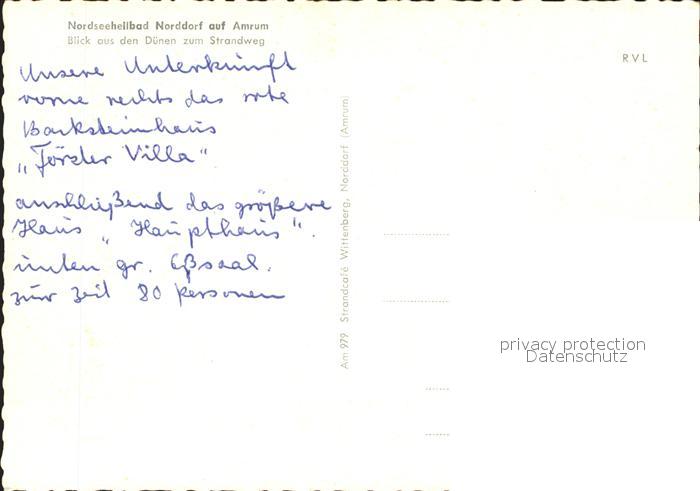 Nordseeheilbad Norddorf auf Amrum
Blick aus den Dünen zum Strandweg
RVL
Unsere Unterkünft
vorne rechts das rote
Backsteinhaus
„Förster Villa“
anschließend das größere
Haus „Haupthaus“.
unten gr. Eßsaal.
zur Zeit 80 Personen
Am 979 Strandcafé Wittenberg, Norddorf (Amrum)
privacy protection
Datenschutz